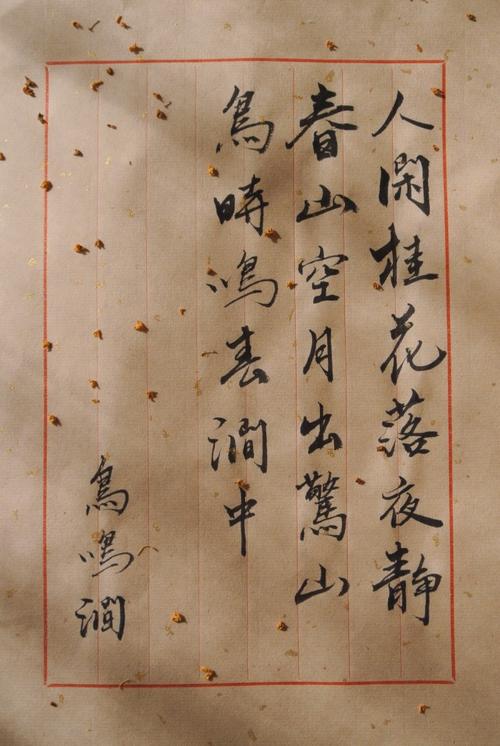 人閑桂花落夜静
春山空月出驚山
鳥時鳴春澗中
鳥鳴澗